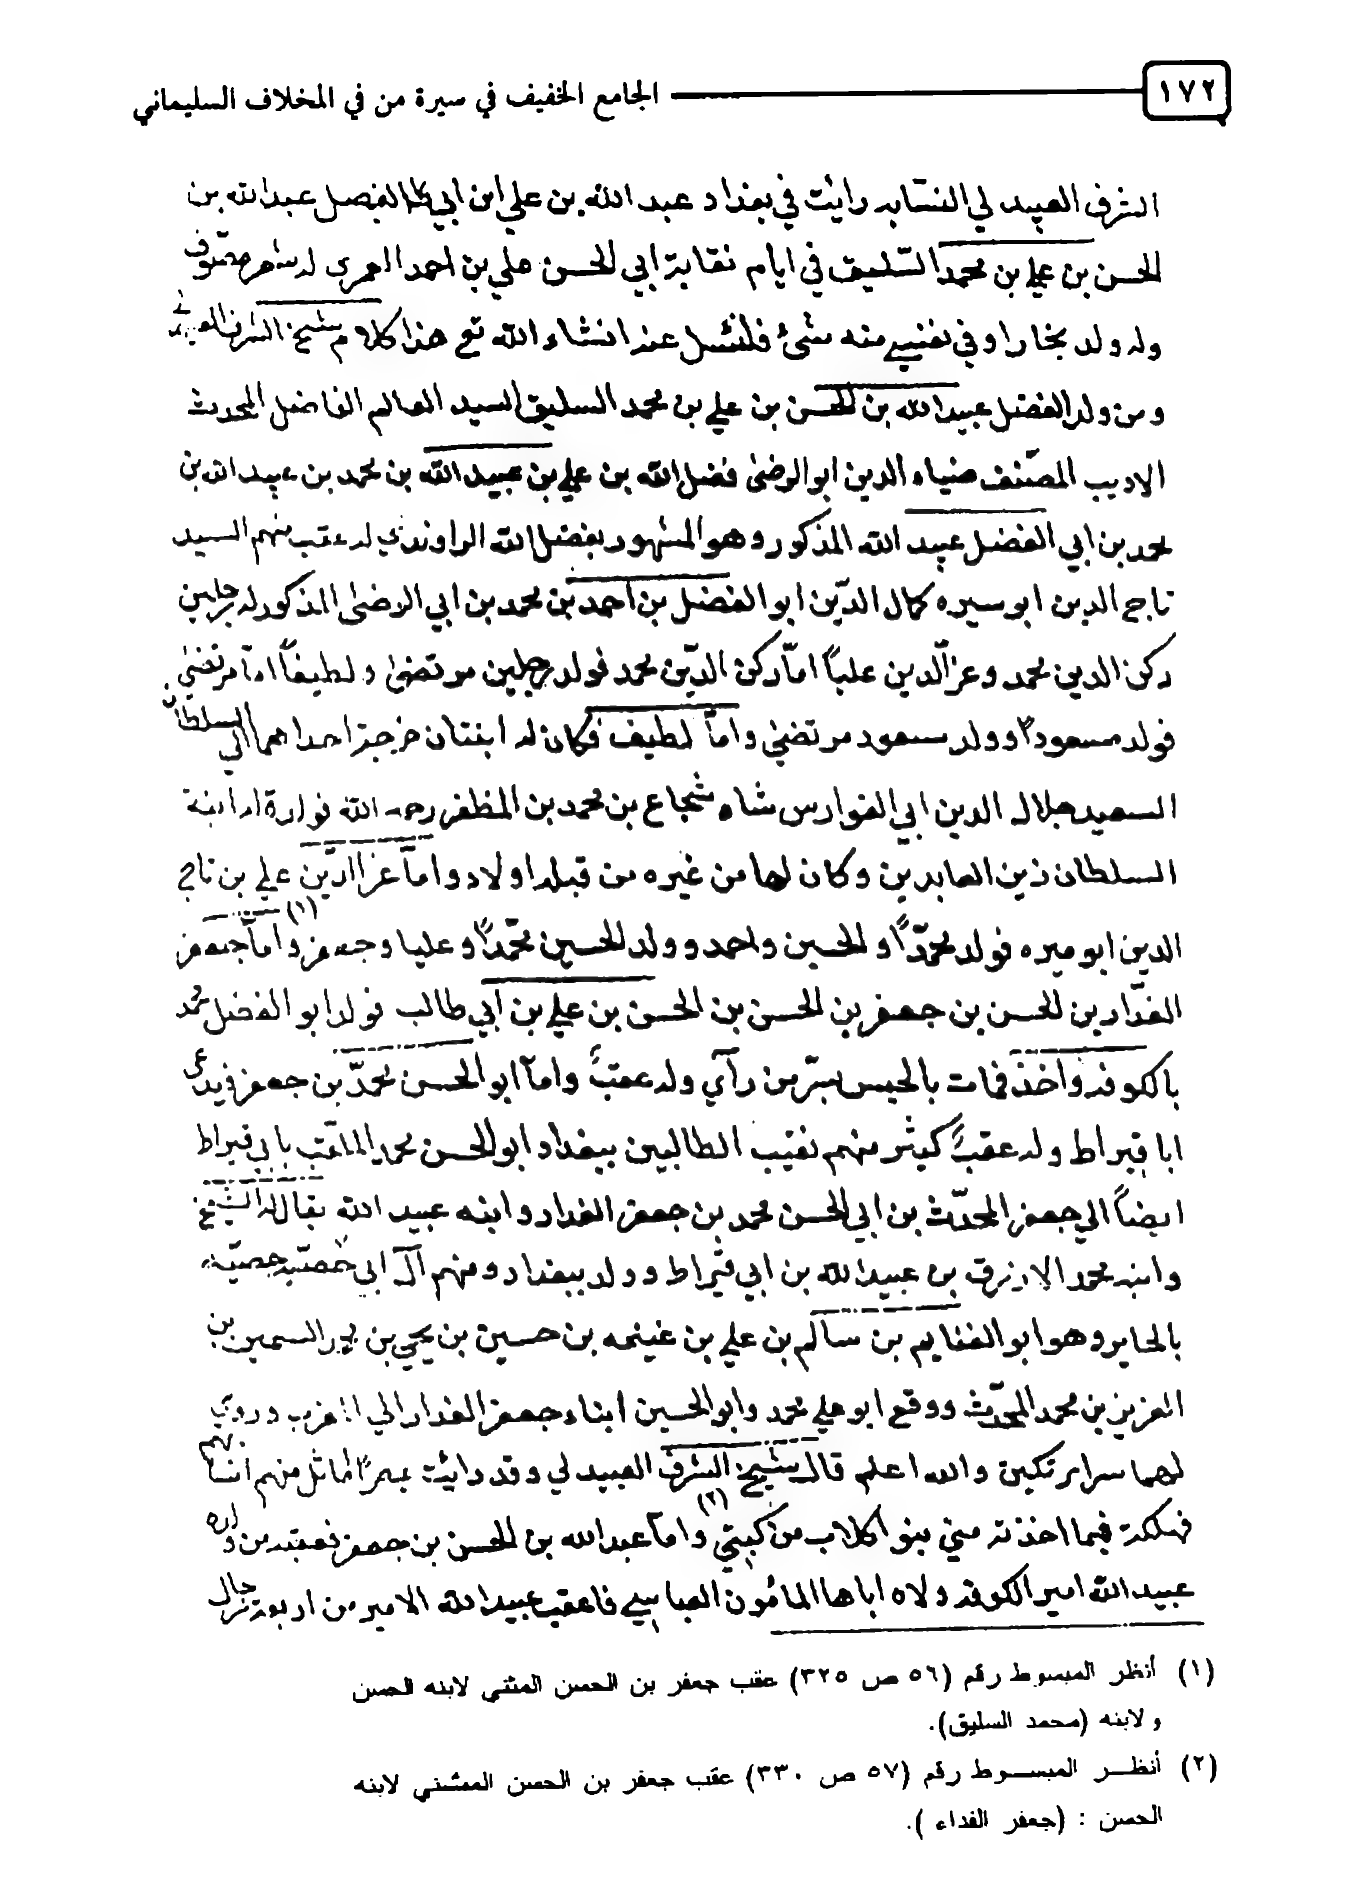 ١٧٢ الجامع الخفيف في سيرة من في المخلاف السليماني
الشرف العبيد لي النسابه رايت في بغداد عبد الله بن علي ابن ابي الفضل عبد الله بن
الحسن بن علي بن محمد السليق في ايام نقابة ابي الحسن علي بن احمد العمري له شعر متصوف
وله ولد بخارا وفي نفسي منه شئ فلنسل عند انشاء الله تع هذا كلام شيخ الشرف
ومن ولد الفضل عبيد الله بن الحسن بن علي بن محمد السليق السيد العالم الفاضل المحدث
الاديب المصنف ضياء الدين ابو الرضى فضل الله بن علي بن عبيد الله بن محمد بن عبيد الله بن
محمد بن ابي الفضل عبيد الله المذكور وهو المشهور بفضل الله الراوندي له عقب منهم السيد
تاج الدين ابو سيره كمال الدين ابو الفضل بن احمد بن محمد بن ابي الرضى المذكور له رجلين
ركن الدين محمد وعز الدين عليا اما ركن الدين محمد فولد رجلين مرتضى ولطيفا اما مرتضى
فولد مسعود وولد مسعود مرتضى واما لطيف فكان له ابنتان خرجة احداهما الى السلطان
السعيد جلال الدين ابي الفوارس شاه شجاع بن محمد بن المظفر رحمه الله فولدة له ابنة
السلطان زين العابدين وكان لها من غيره من قبله اولاد واما عز الدين علي بن تاج
الدين ابو ميره فولد محمدا والحسين واحمد وولد الحسين محمدا وعليا وجعفر واما جعفر (١)
الغدار بن الحسن بن جعفر بن الحسن بن الحسن بن علي بن ابي طالب فولد ابو الفضل محمد
بالكوفه واخذ فمات بالحبس بسر من رآي وله عقب واما ابو الحسن محمد بن جعفر فيدعى
ابا قيراط وله عقب كثير منهم نقيب الطالبين ببغداد ابو الحسن محمد الملقب بابي قيراط
ايضا الي جعفر المحدث بن ابي الحسن محمد بن جعفر الغدار وابنه عبيد الله يقال له الشيخ
وابنه محمد الازرق بن عبيد الله بن ابي قيراط وولد ببغداد ومنهم آل ابي
بالحاير وهو ابو الغنايم بن سالم بن علي بن غنيمه بن حسين بن يحيي بن
العزيز بن محمد المحدث ووقع ابو علي محمد وابو الحسين ابناء جعفر الغدار الي المغرب وروي
لهما سراير تكين والله اعلم قال شيخ الشرف العبيد لي وقد رايت بمصر اماثل منهم
فهلكت فيما اخذته مني بنو كلاب من كتبي (٢) واما عبد الله بن الحسن بن جعفر فعقبه من ولده
عبيد الله امير الكوفه ولاه اباها المامون العباسي فاعقب عبيد الله الامير من اربعة رجال
(١) أنظر المبسوط رقم (٥٦ ص ٣٢٥) عقب جعفر بن الحسن المثنى لابنه الحسن
ولابنه (محمد السليق).
(٢) أنظــر المبســوط رقم (٥٧ ص ٣٣٠) عقب جعفر بن الحسن المثنى لابنه
الحسن : (جعفر الغداء ).